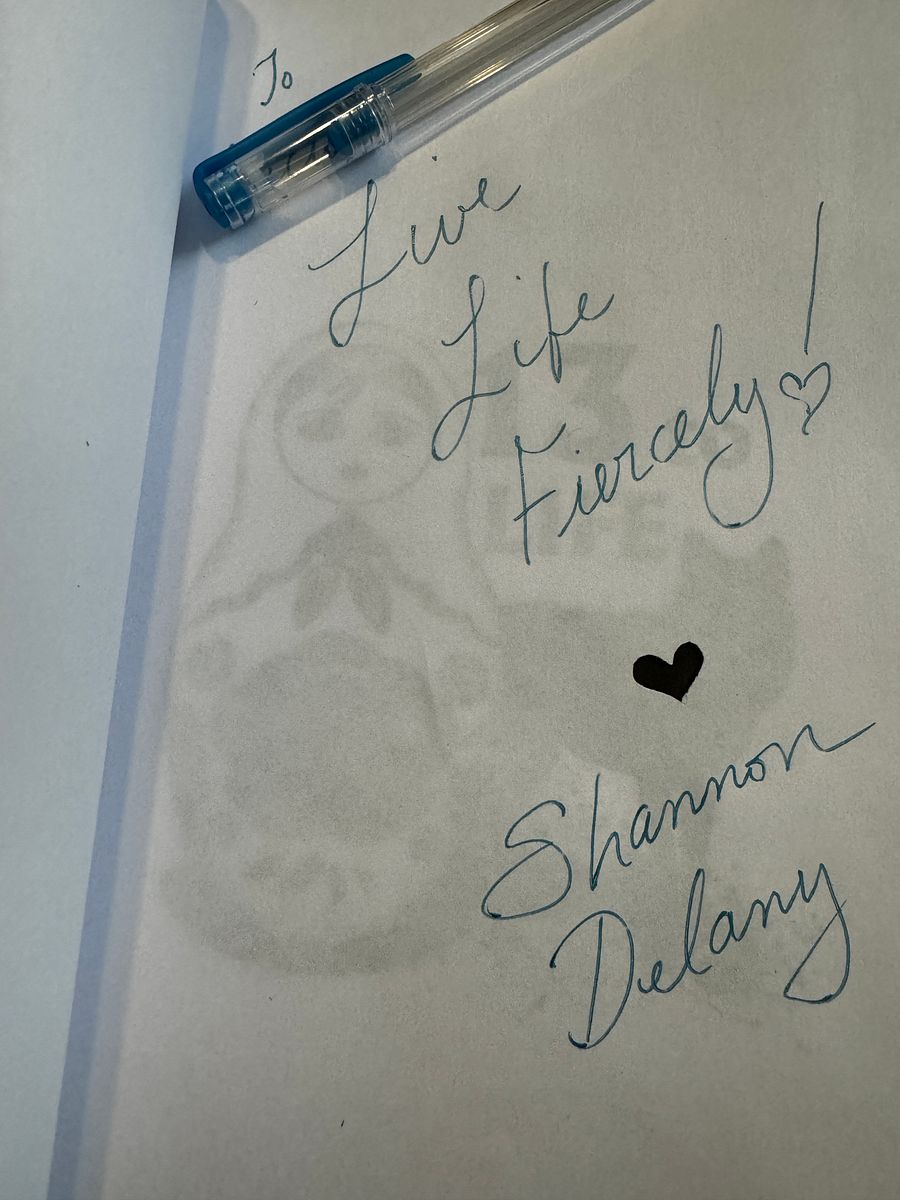 To
Live
Life
Fiercely!
Shannon
Delany